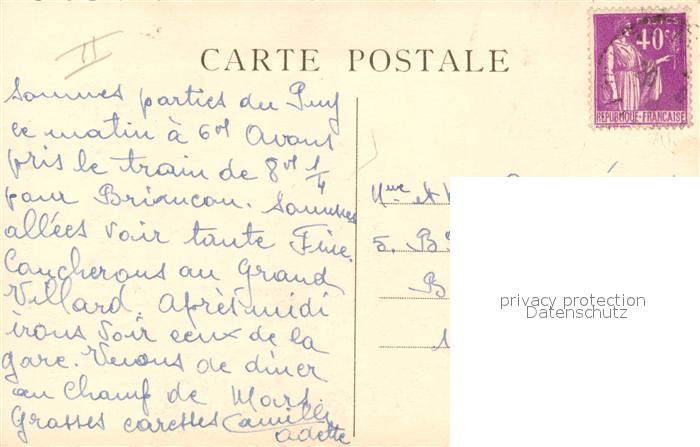 II
CARTE POSTALE
POSTES
40c
REPUBLIQUE-FRANÇAISE
Sommes parties du Puy
ce matin à 6h Avons
pris le train de 8h 1/4
pour Briançon. Sommes
allées voir tante Fine.
Coucherons au Grand
Villard. Après midi
irons voir ceux de la
gare. Venons de diner
au Champ de Mars.
Grosses caresses Camille
Odette
Mme et
5. B
B
privacy protection
Datenschutz